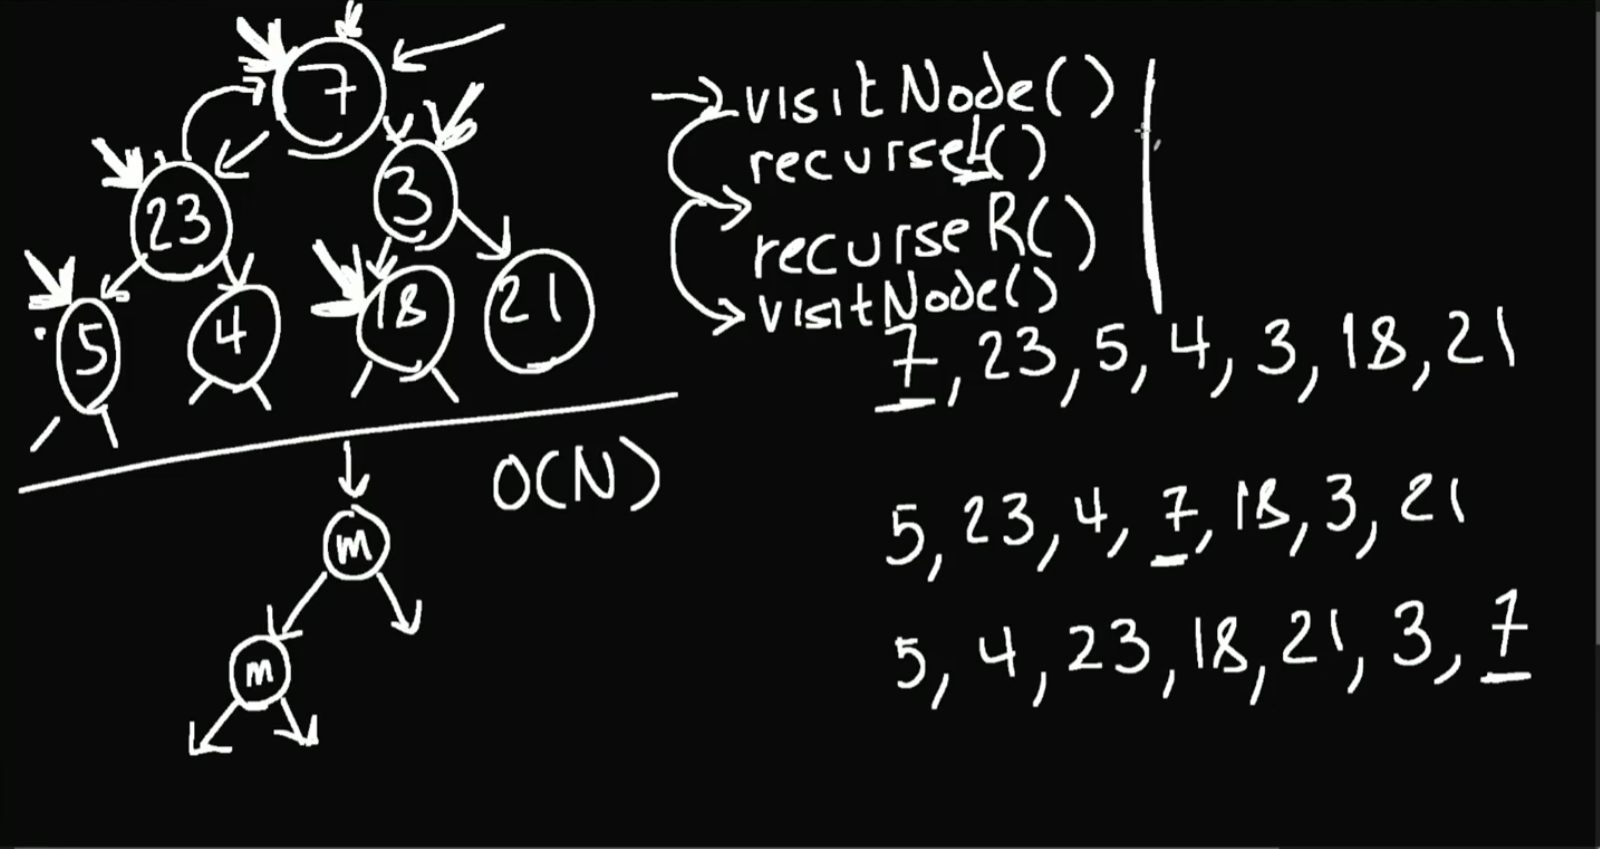 7
23 3
5 4 18 21
visitNode()
recurseL()
recurseR()
visitNode()
7, 23, 5, 4, 3, 18, 21
O(N)
5, 23, 4, 7, 18, 3, 21
m
5, 4, 23, 18, 21, 3, 7
m